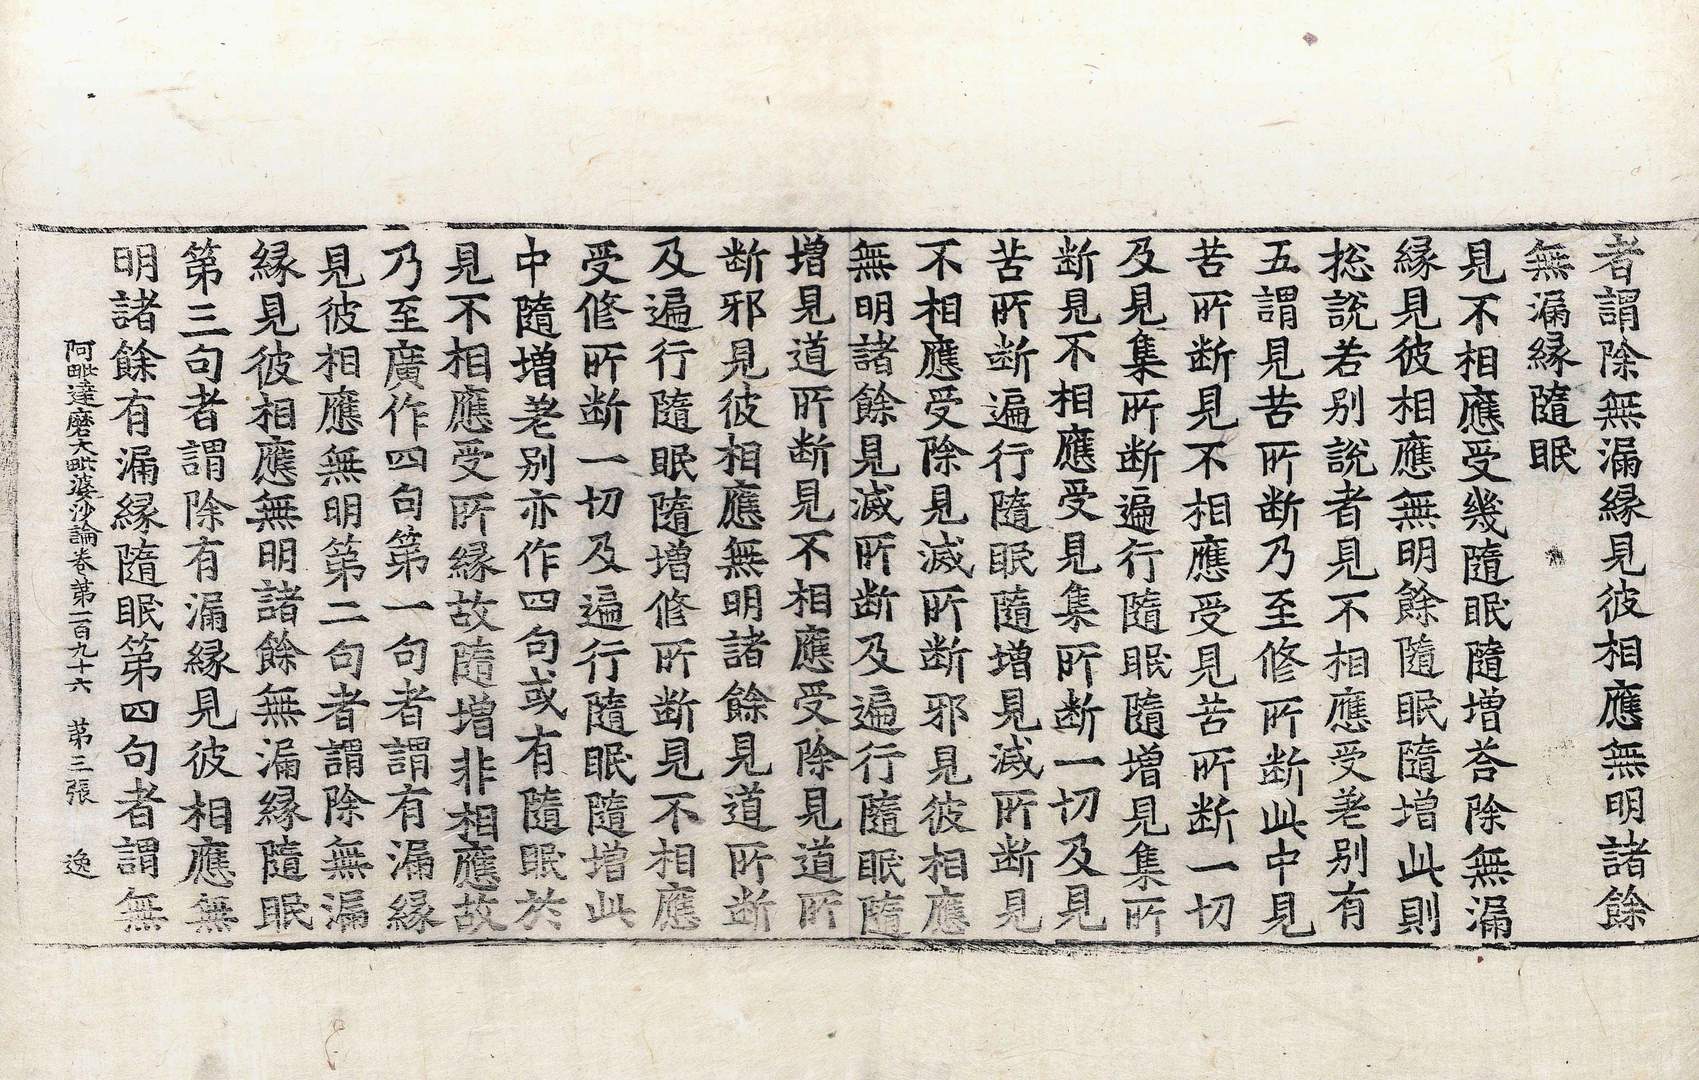 者謂除無漏縁見彼相應無明諸餘
無漏縁隨眠
見不相應受幾隨眠隨增荅除無漏
縁見彼相應無明餘隨眠隨增此則
捴說若別說者見不相應受差別有
五謂見苦所断乃至修所断此中見
苦所断見不相應受見苦所断一切
及見集所断遍行隨眠隨增見集所
断見不相應受見集所断一切及見
苦所断遍行隨眠隨增見滅所断見
不相應受除見滅所断邪見彼相應
無明諸餘見滅所断及遍行隨眠隨
增見道所断見不相應受除見道所
断邪見彼相應無明諸餘見道所断
及遍行隨眠隨增修所断見不相應
受修所断一切及遍行隨眠隨增此
中隨增差別亦作四句或有隨眠於
見不相應受所縁故隨增非相應故
乃至廣作四句第一句者謂有漏縁
見彼相應無明第二句者謂除無漏
縁見彼相應無明諸餘無漏縁隨眠
第三句者謂除有漏縁見彼相應無
明諸餘有漏縁隨眠第四句者謂無
阿毗達磨大毗婆沙論卷第一百九十六　第三張　逸